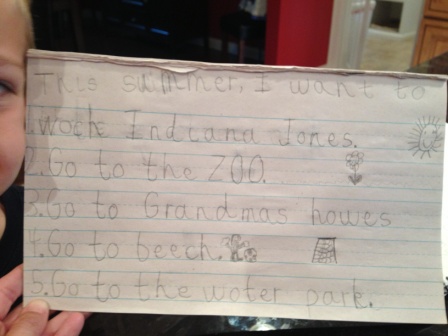 This summer, I want to
1. woch Indiana Jones.
2. Go to the ZOO.
3. Go to Grandmas howes
4. Go to beech.
5. Go to the woter park.